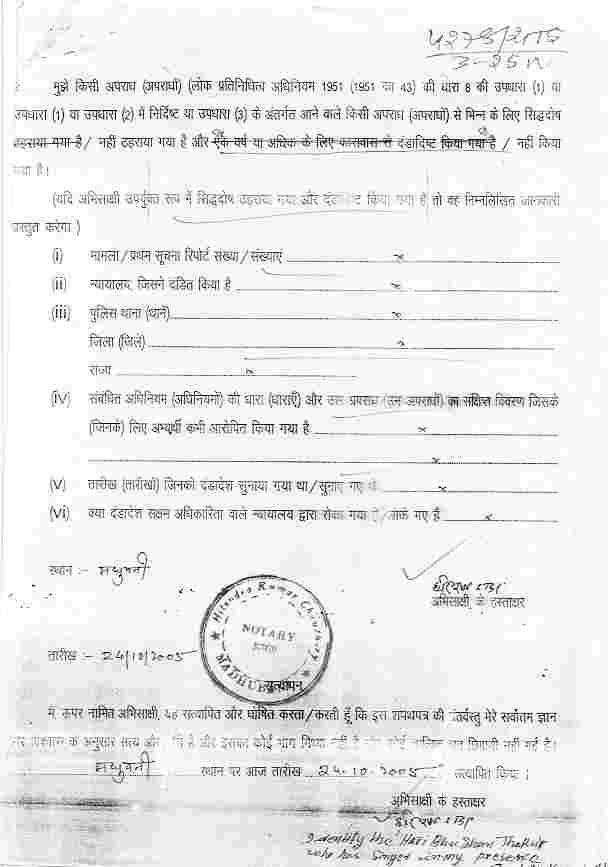 मुझे किसी अपराध (अपराधों) (लोक प्रतिनिधित्व अधिनियम 1951 (1951 का 43) की धारा 8 की उपधारा (1) या
उपधारा (1) या उपधारा (2) में निर्दिष्ट या उपधारा (3) के अंतर्गत आने वाले किसी अपराध (अपराधों) से भिन्न के लिए सिद्धदोष
ठहराया गया है / नहीं ठहराया गया है और एक वर्ष या अधिक के लिए कारावास से दंडादिष्ट किया गया है / नहीं किया
गया है।
(यदि अभिसाक्षी उपर्युक्त रूप में सिद्धदोष ठहराया गया और दंडादिष्ट किया गया है तो वह निम्नलिखित जानकारी
प्रस्तुत करेगा )
(i) मामला/प्रथम सूचना रिपोर्ट संख्या/संख्याएं x
(ii) न्यायालय, जिसने दंडित किया है x
(iii) पुलिस थाना (थानें) x
जिला (जिले) x
राज्य x
(iv) संबंधित अधिनियम (अधिनियमों) की धारा (धाराएँ) और उस अपराध (उन अपराधों) का संक्षिप्त विवरण जिसके
(जिनके) लिए अभ्यर्थी कभी आरोपित किया गया है x
x
(v) तारीख (तारीखों) जिनको दंडादेश सुनाया गया था/सुनाए गए थे x
(vi) क्या दंडादेश सक्षम अधिकारिता वाले न्यायालय द्वारा रोका गया है/रोके गए है x
स्थान :- मधुबनी
अभिसाक्षी के हस्ताक्षर
Hitendra Kumar Choudhary
NOTARY
MADHUBANI
तारीख :- 24/10/2005
सत्यापन
मैं, ऊपर नामित अभिसाक्षी, यह सत्यापित और घोषित करता/करती हूँ कि इस शपथपत्र की अंतर्वस्तु मेरे सर्वोतम ज्ञान
और विश्वास के अनुसार सत्य और सही है और इसका कोई भाग मिथ्या नहीं है और कोई तात्विक बात छिपायी नहीं गई है।
मधुबनी स्थान पर आज तारीख 24.10.2005 सत्यापित किया।
अभिसाक्षी के हस्ताक्षर
I dentify the Hari Bhushan Thakur
who has singed in my presence